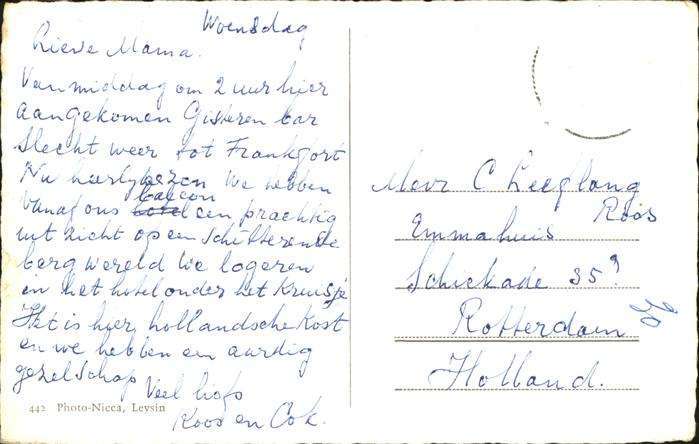 Woensdag
Lieve Mama.
Vanmiddag om 2 uur hier
aangekomen Gisteren bar
slecht weer tot Frankfort
Nu heerlijk We hebben
balcon
vanaf ons hotel een prachtig
uit zicht op een schitterende
berg wereld We logeren
in het hotel onder het Kruisje
Het is hier hollandsche Kost
en we hebben een aardig
gezelschap
Veel liefs
Koos en Cok.
442 Photo-Nicca, Leysin
Mevr C Leeflang
Roos
Emmahuis
Schiekade 35
Rotterdam
Holland.